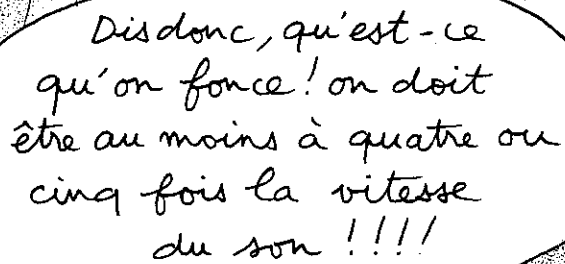 Disdonc, qu'est-ce
qu'on fonce! on doit
être au moins à quatre ou
cinq fois la vitesse
du son !!!!